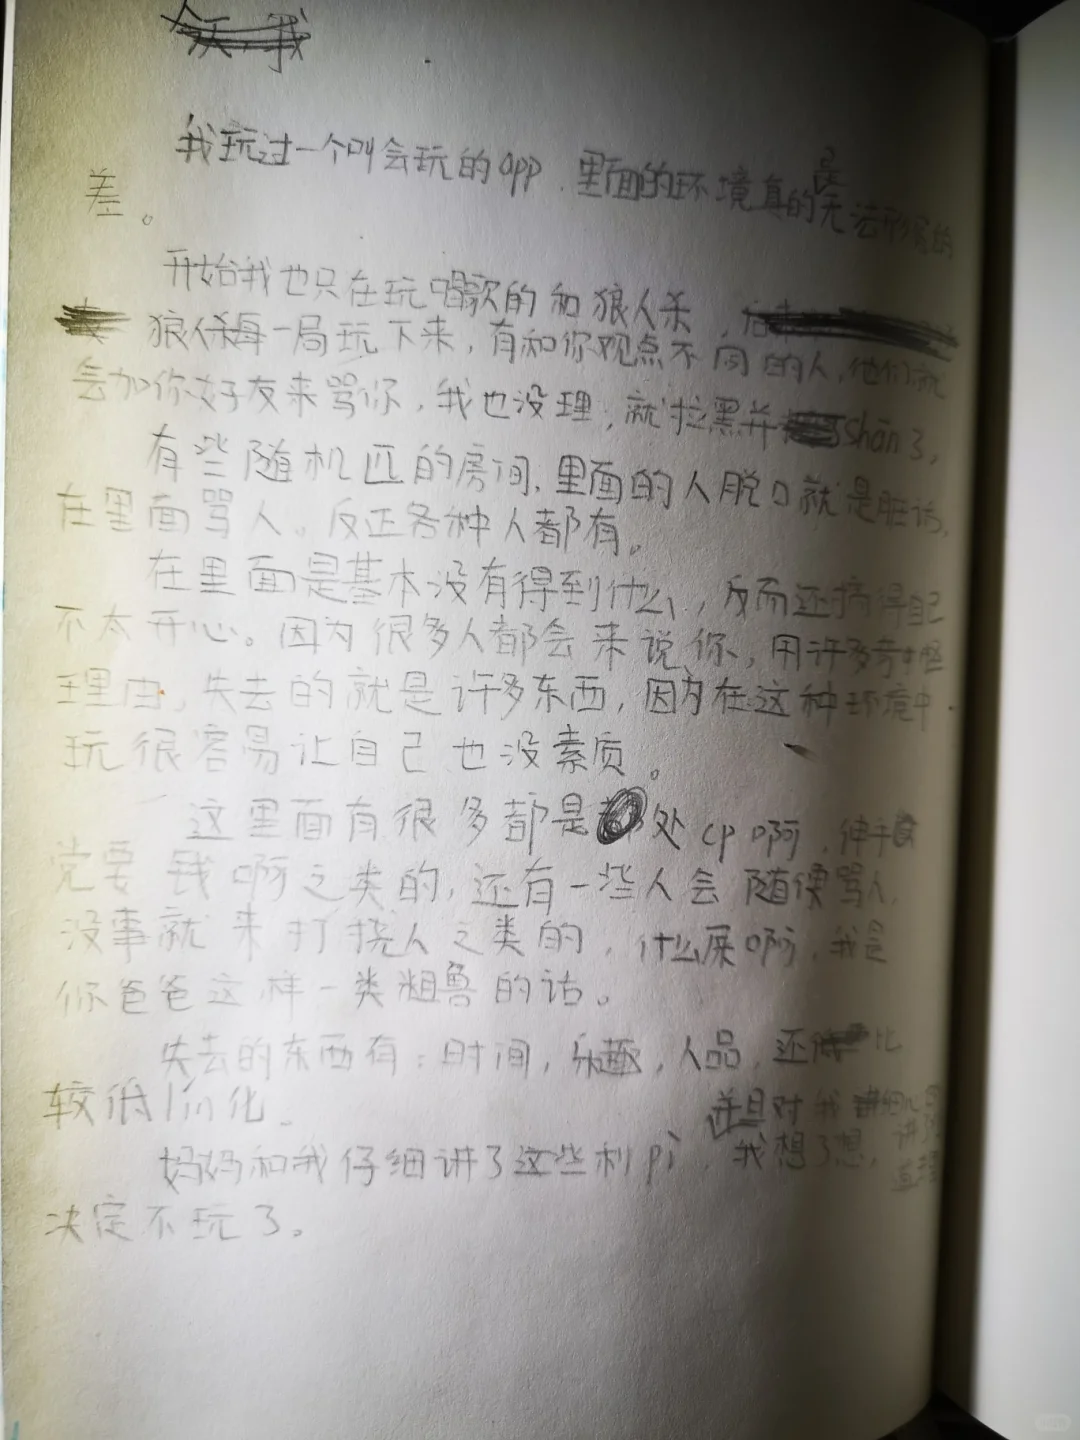 我玩过一个叫会玩的app，里面的环境真的是无法形容的
差。
开始我也只在玩唱歌的和狼人杀，
狼人杀每一局玩下来，有和你观点不同的人，他们就
会加你好友来骂你，我也没理，就拉黑并shān了，
有些随机匹的房间，里面的人脱口就是脏话，
在里面骂人。反正各种人都有。
在里面是基本没有得到什么，反而还搞得自己
不太开心。因为很多人都会来说你，用许多奇怪
理由，失去的就是许多东西，因为在这种环境中
玩很容易让自己也没素质。
这里面有很多都是处cp啊，伸手
党要我啊之类的，还有一些人会随便骂人，
没事就来打挠人之类的，什么屎啊，我是
你爸爸这样一类粗鲁的话。
失去的东西有：时间，乐趣，人品，还比
较低lín化。
妈妈和我仔细讲了这些利pì，并且对我细心讲了道理，我想了想，
决定不玩了。